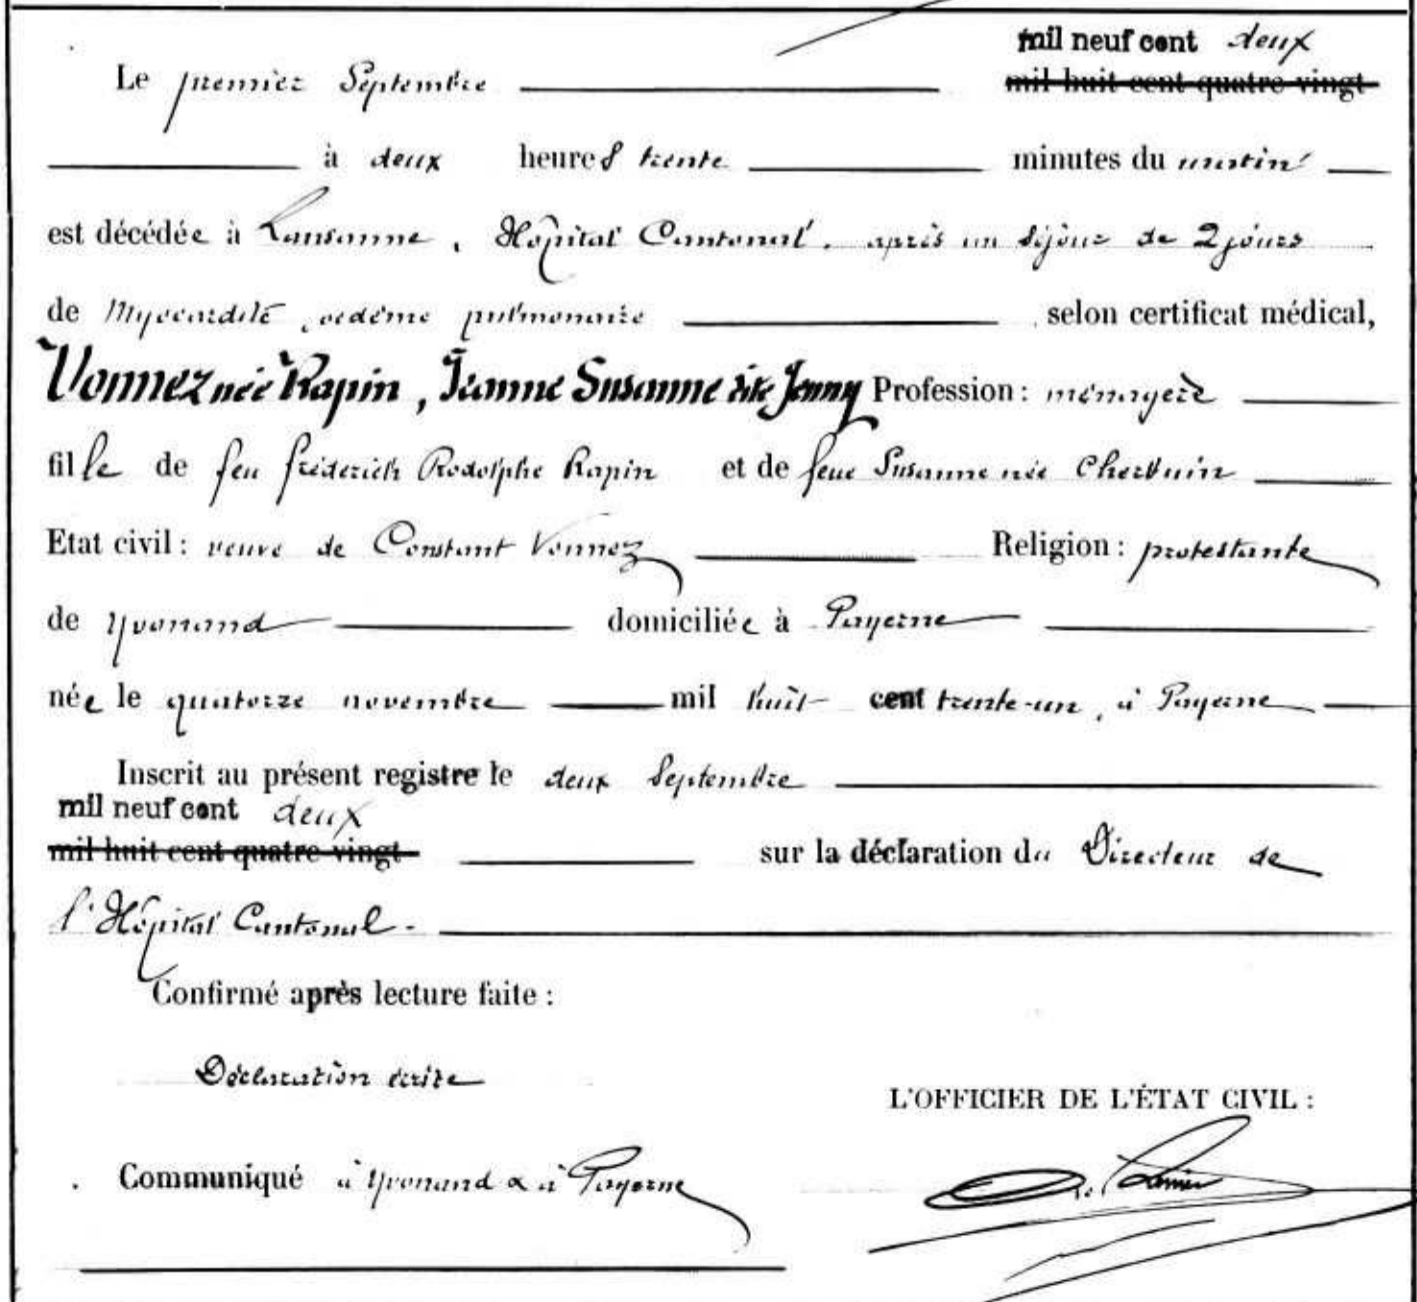 mil neuf cent deux
Le premier Septembre mil huit cent quatre-vingt
à deux heures trente minutes du matin
est décédée à Lausanne, Hôpital Cantonal, après un séjour de 2 jours
de Myocardite, oedème pulmonaire selon certificat médical,
Vonnez née Rapin, Jeanne Susanne dite Jenny Profession : ménagère
fille de feu Fréderich Rodolphe Rapin et de feue Susanne née Cherbuin
Etat civil : veuve de Constant Vonnez Religion : protestante
de Yvonand domiciliée à Payerne
née le quatorze novembre mil huit cent trente-un, à Payerne
Inscrit au présent registre le deux Septembre
mil neuf cent deux
mil huit cent quatre-vingt sur la déclaration du Directeur de
l'Hôpital Cantonal.
Confirmé après lecture faite :
Déclaration écrite
L'OFFICIER DE L'ÉTAT CIVIL :
Communiqué à Yvonand & à Payerne